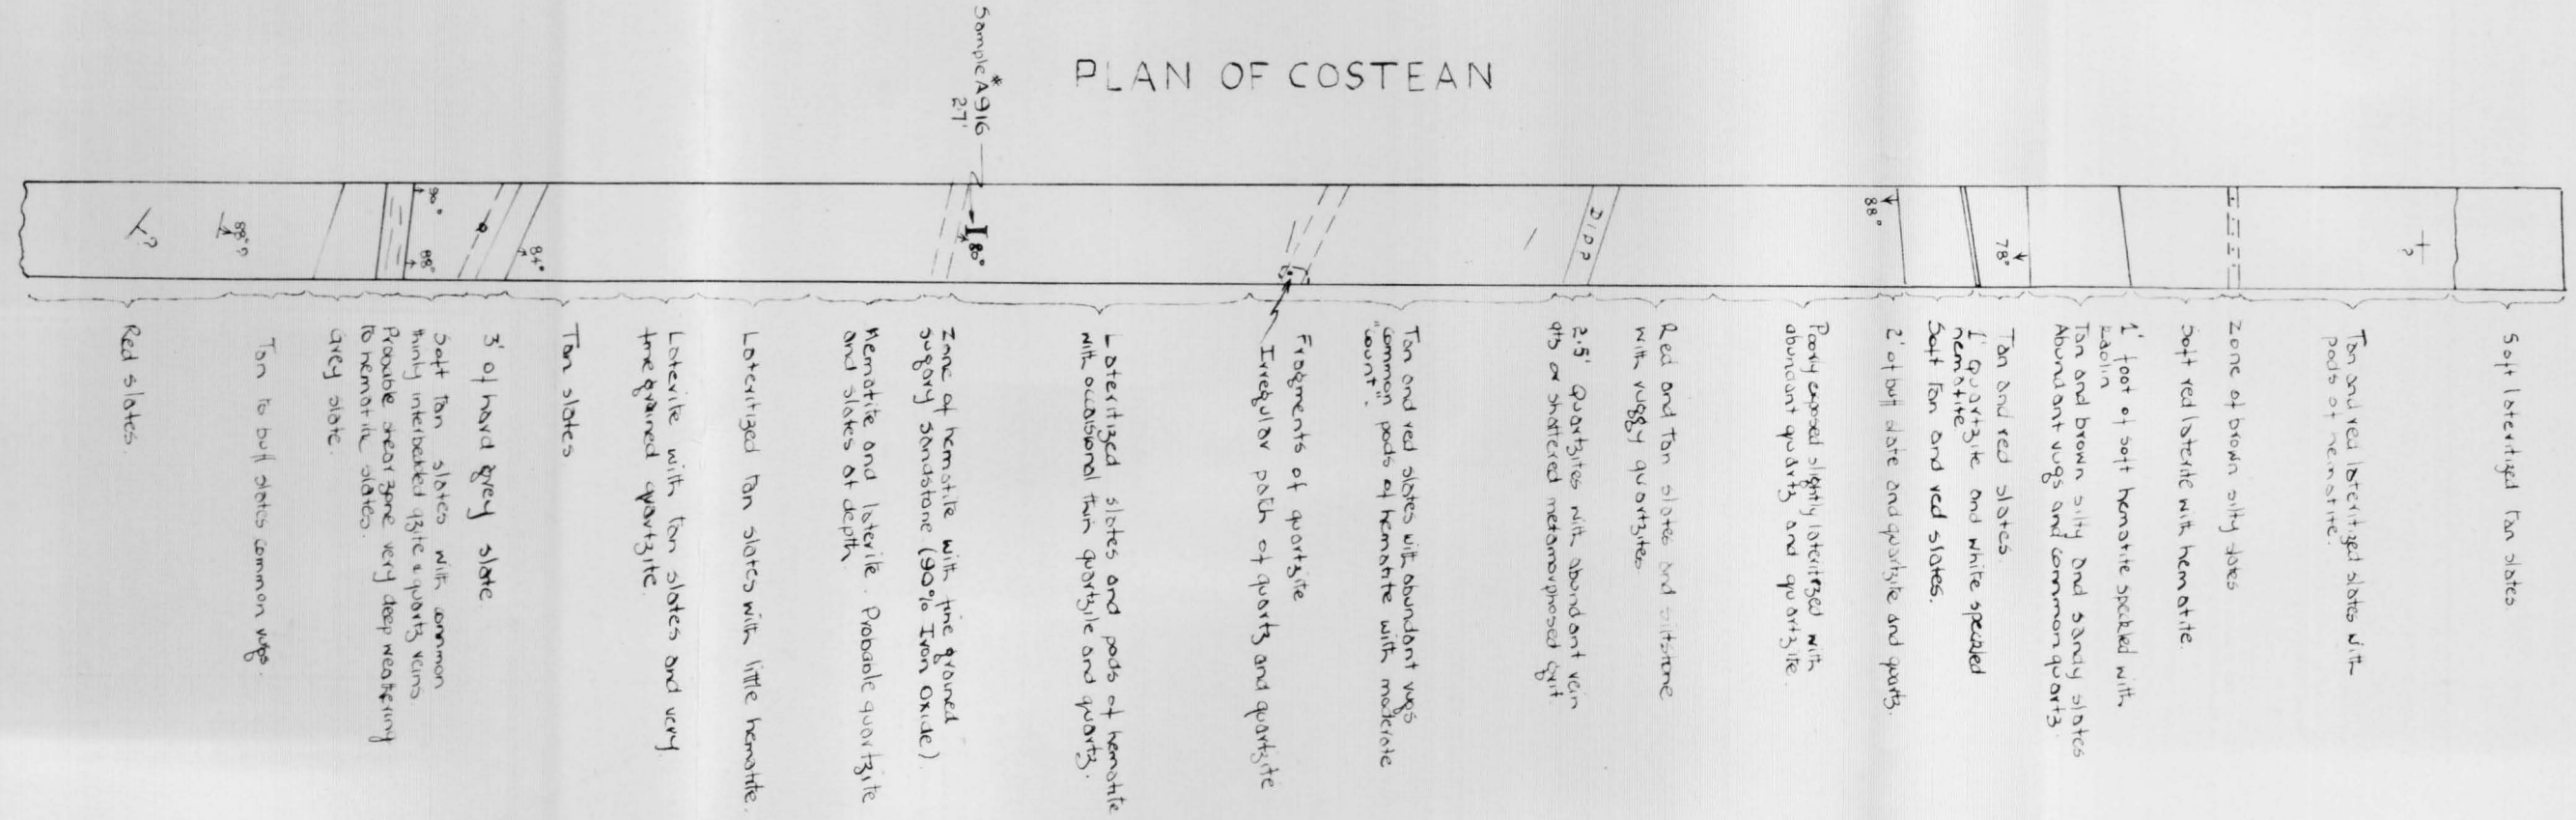 PLAN OF COSTEAN
Sample *A916
27'
?
88°?
90°
88°
84°
80°
DIP ?
88°
78°
?
Red slates.
Tan to buff slates common vugs.
Grey slate.
Probable shear zone very deep weathering
to hematitic slates.
Soft tan slates with common
thinly interbedded qzite & quartz veins.
3' of hard grey slate.
Tan slates
Laterite with tan slates and very
fine grained quartzite.
Lateritized tan slates with little hematite.
Hematite and laterite. Probable quartzite
and slates at depth.
Zone of hematite with fine grained
sugary sandstone (90% Iron Oxide).
Lateritized slates and pods of hematite
with occaisional thin quartzite and quartz.
Irregular patch of quartz and quartzite
Fragments of quartzite
Tan and red slates with abundant vugs
common pods of hematite with moderate
"count".
2.5' Quartzites with abundant vein
qtz or shattered metamorphosed grit.
Red and tan slates and siltstone
with vuggy quartzites
Poorly exposed slightly lateritized with
abundant quartz and quartzite.
2' of buff slate and quartzite and quartz.
Soft tan and red slates.
1' Quartzite and white speckled
hematite
Tan and red slates.
Tan and brown silty and sandy slates
Abundant vugs and common quartz.
1' foot of soft hematite speckled with
kaolin
Soft red laterite with hematite.
Zone of brown silty slates
Tan and red lateritized slates with
pods of hematite.
Soft lateritized tan slates